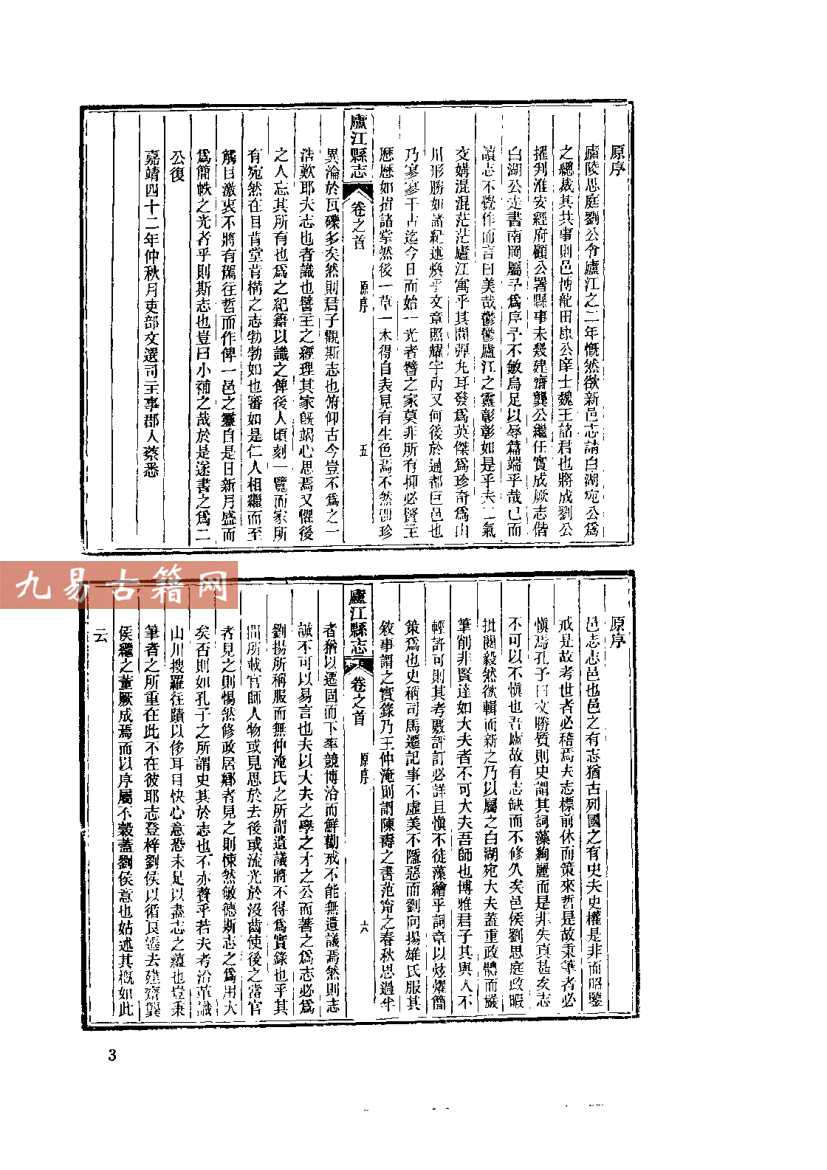 原序
廬陵思庭劉公令廬江之二年慨然欲新邑志請白湖宛公爲
之總裁其共事則邑博龍田康公庠士魏王諸君也將成劉公
擢判淮安經府顧公署縣事未幾建齋龔公繼任實成厥志偕
白湖公走書南岡屬予爲序予不敏烏足以辱篇端乎哉已而
讀志不覺作而言曰美哉鬱鬱廬江之靈彰彰如是乎夫二氣
交媾混混茫茫廬江寓乎其間彈丸耳發爲英傑爲珍奇爲山
川形勝如諸紀述煥乎文章照耀宇內又何後於通都巨邑也
乃寥寥千古迄今日而始一光者譬之家莫非所有抑必賢主
歷歷如指諸掌然後一草一木得自表見有生色焉不然卽珍
廬江縣志
卷之首
原序
五
異淪於瓦礫多矣然則君子觀斯志也俯仰古今豈不爲之一
浩歎耶夫志也者識也譬主之經理其家旣竭心思焉又懼後
之人忘其所有也爲之紀籍以識之俾後人頃刻一覽而家所
有宛然在目肯堂肯構之志勃勃如也審如是仁人相繼而至
觸目激衷不將有駕往哲而作俾一邑之靈自是日新月盛而
爲簡帙之光者乎則斯志也豈曰小補之哉於是遂書之爲二
公復
嘉靖四十二年仲秋月吏部文選司主事郡人蔡悉
原序
邑志志邑也邑之有志猶古列國之有史夫史權是非而昭鑒
戒是故考世者必稽焉夫志標前休而策來哲是故秉筆者必
愼焉孔子曰文勝質則史謂其詞藻絢麗而是非失真甚矣志
不可以不愼也吾廬故有志缺而不修久矣邑侯劉思庭政暇
批閱毅然欲輯而新之乃以屬之白湖宛大夫蓋重政體而議
筆削非賢達如大夫者不可大夫吾師也博雅君子其與人不
輕許可則其考覈評訂必詳且愼不徒藻繪乎詞章以炫燿簡
策爲也史稱司馬遷記事不虛美不隱惡而劉向揚雄氏服其
敘事謂之實錄乃王仲淹則謂陳壽之書范甯之春秋思過半
廬江縣志
卷之首
原序
六
者猶以遷固而下率競博洽而鮮勸戒不能無遺議焉然則志
誠不可以易言也夫以大夫之學之才之公而著之爲志必爲
劉揚所稱服而無仲淹氏之所謂遺議將不得爲實錄也乎其
間所載官師人物或見思於去後或流光於沒齒使後之當官
者見之則惕然修政居鄕者見之則悚然敏德斯志之爲用大
矣否則如孔子之所謂史其於志也不亦贅乎若夫考沿革識
山川搜羅往蹟以侈耳目快心意恐未足以盡志之蘊也豈秉
筆者之所重在此不在彼耶志登梓劉侯以循良遷去建齋龔
侯繼之董厥成焉而以序屬不穀蓋劉侯意也姑述其槪如此
云
九易古籍网
3